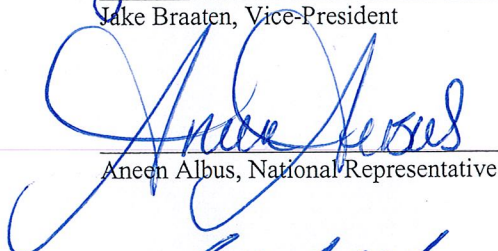 Jake Braaten, Vice-President
Aneen Albus
Aneen Albus, National Representative